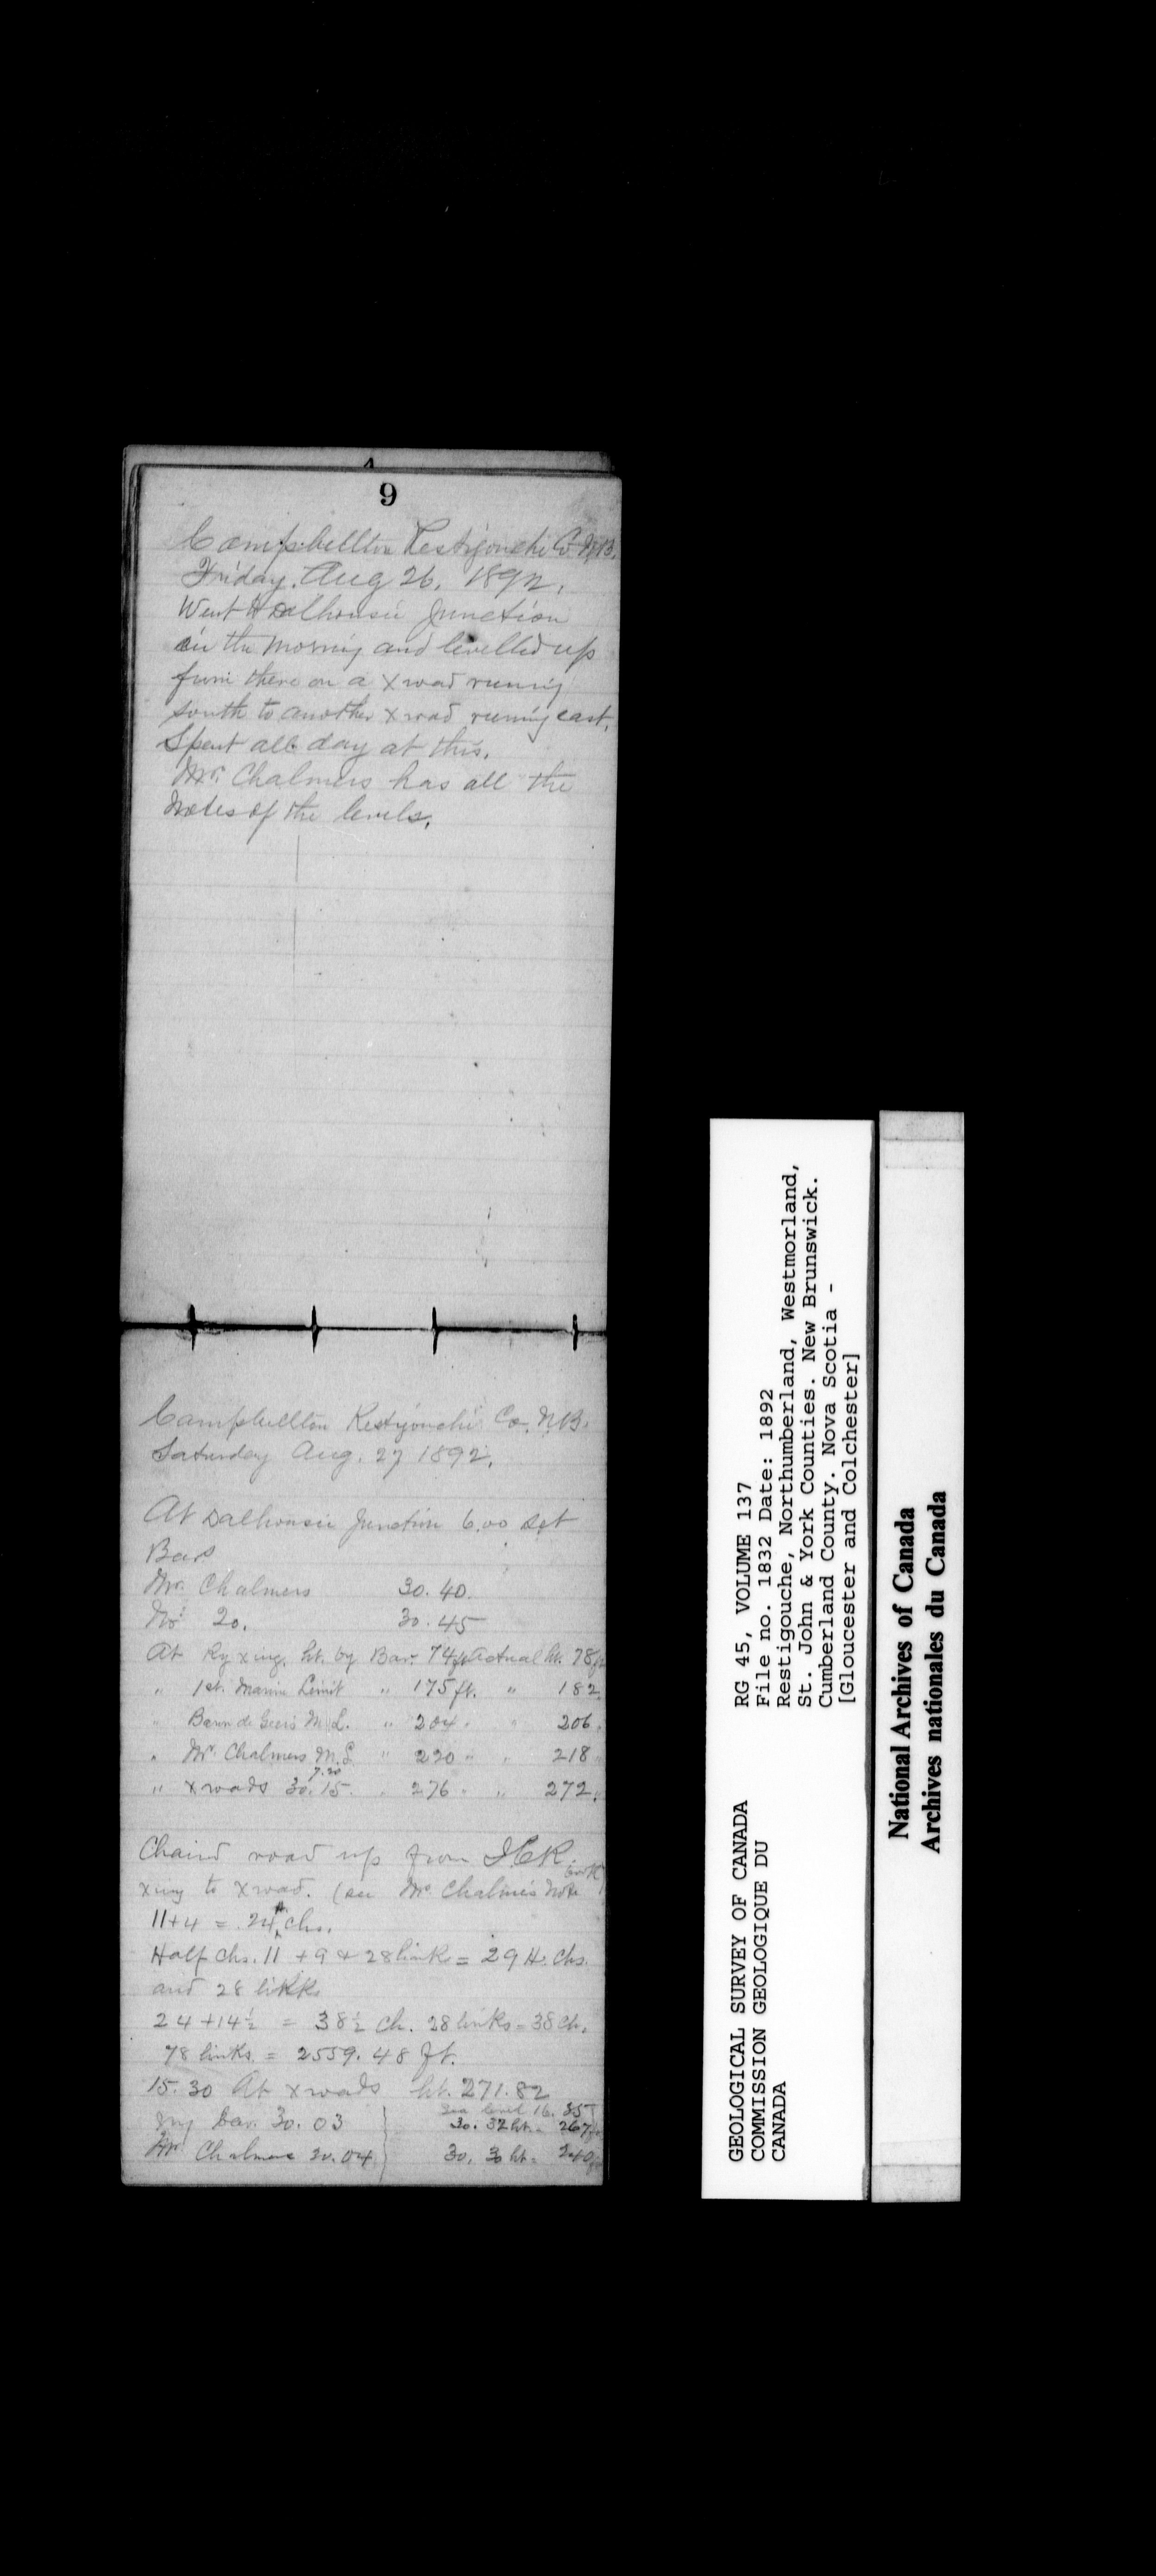 9
Campbellton Restigouche Co. N.B.
Friday. Aug 26. 1892.
Went to Dalhousie Junction
in the morning and levelled up
from there on a x road runing
south to another x road runing east.
Spent all day at this.
Mr. Chalmers has all the
notes of the levels.
Campbellton Restigouche Co. N.B.
Saturday Aug. 27 1892.
At Dalhousie Junction 6.00 Set
Bars
Mr. Chalmers 30.40.
No. 20. 30.45
At Ry xing. ht. by Bar. 74 ft Actual ht. 78 ft
" 1st. Marine Limit " 175 ft. " 182.
" Baron de Geer's M.L. " 204 " " 206 "
" Mr. Chalmers M.L. " 220 " " 218 "
" x roads 30.15. 7.20 " 276 " " 272 "
Chaind road up from I.C.R.
xing to x road. (see Mr. Chalmers Note book)
11+4 = 24 chs.
Half chs. 11 + 9 + 28 link = 29 H. chs.
and 28 links
24 + 14½ = 38½ ch. 28 links = 38 ch.
78 links. = 2559.48 ft.
15.30 At x roads ht. 271.82
Sea level 16.35
my bar. 30.03 } 30.32 ht. = 267 ft
Mr. Chalmers 30.04 } 30.3 ht. = 240 ft
GEOLOGICAL SURVEY OF CANADA
COMMISSION GEOLOGIQUE DU
CANADA
RG 45, VOLUME 137
File no. 1832 Date: 1892
Restigouche, Northumberland, Westmorland,
St. John & York Counties. New Brunswick.
Cumberland County. Nova Scotia -
[Gloucester and Colchester]
National Archives of Canada
Archives nationales du Canada